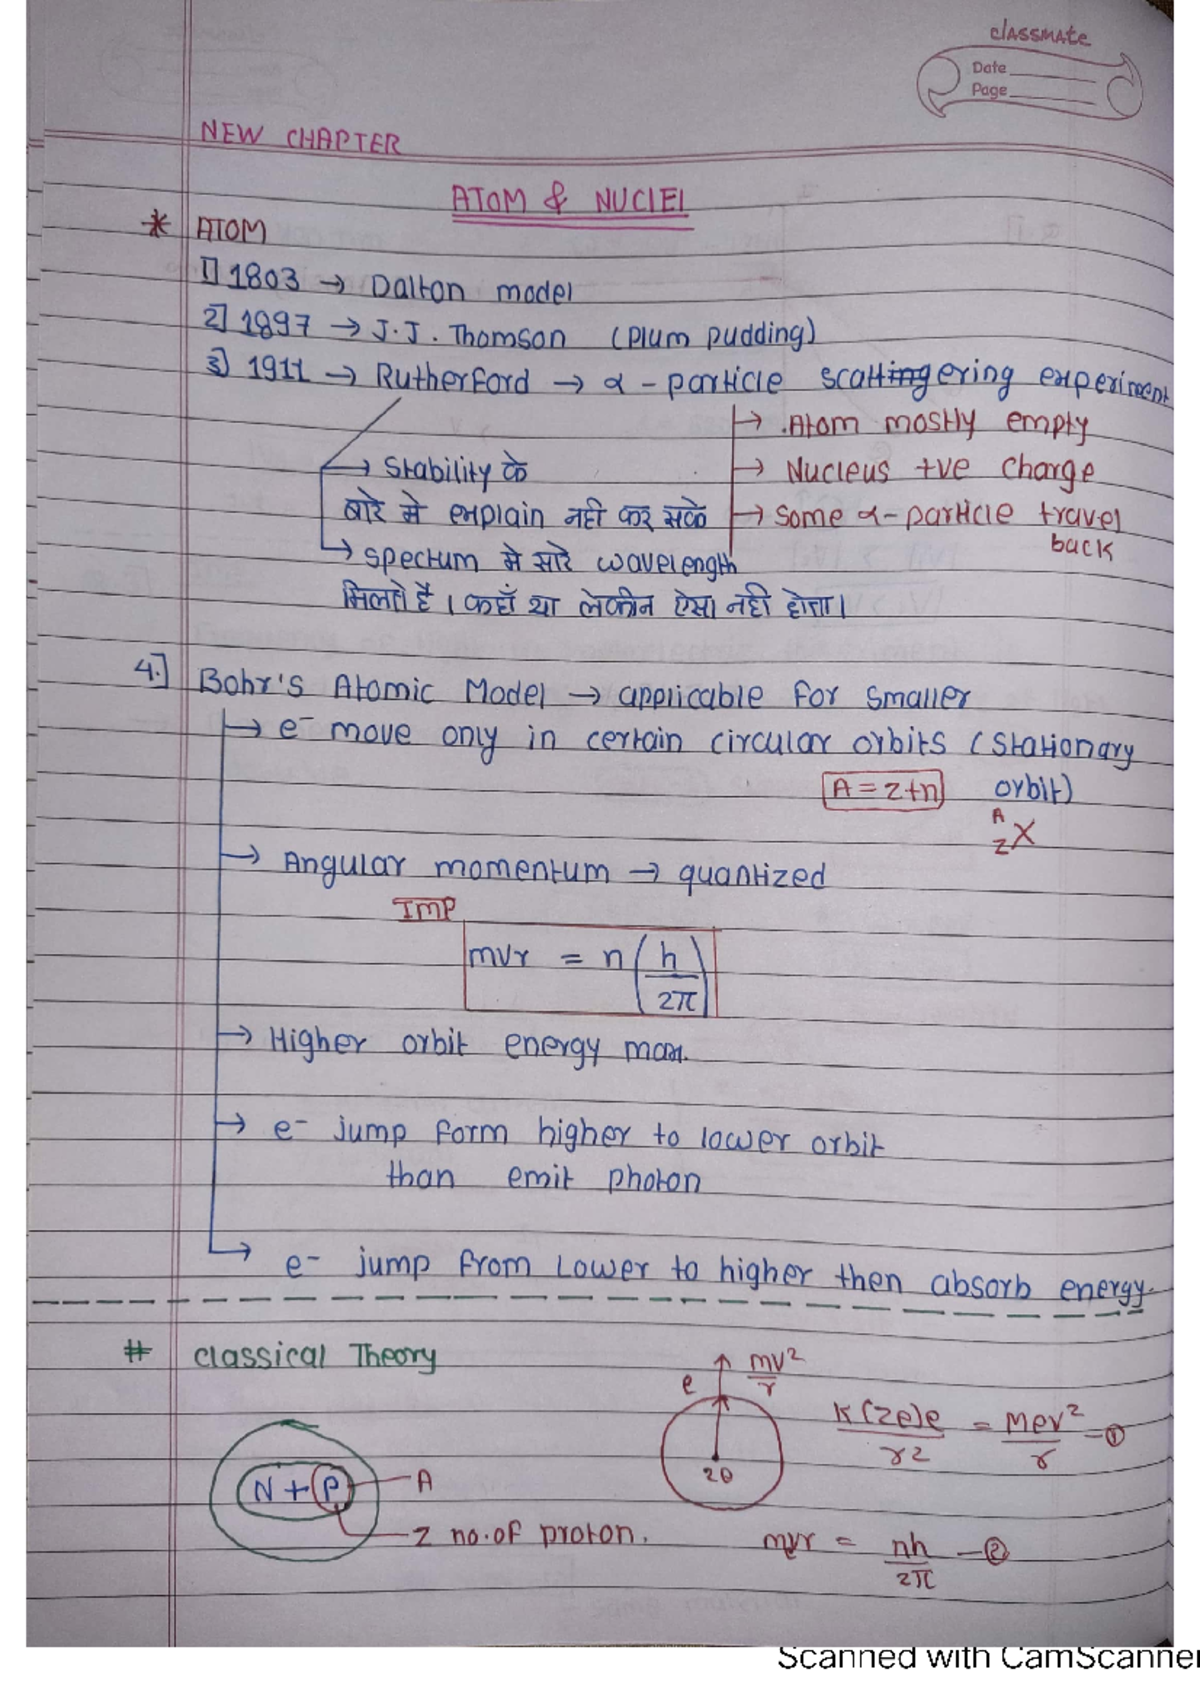 classmate
Date
Page
NEW CHAPTER
ATOM & NUCLEI
* ATOM
1] 1803 → Dalton model
2] 1897 → J.J. Thomson (Plum pudding)
3] 1911 → Rutherford → α - particle scattingering experiment
→ Atom mostly empty
→ Stability के → Nucleus +ve charge
बारे मे explain नही कर सके → some α-particle travel
back
→ spectum मे सारे wavelength
मिलते है । कहाँ था लेकीन ऐसा नही होता।
4.] Bohr's Atomic Model → applicable for smaller
→ e⁻ move only in certain circular orbits (Stationary
A = z+n orbit)
A
Z X
→ Angular momentum → quantized
IMP
mvr = n(h/2π)
→ Higher orbit energy max.
→ e- jump form higher to lower orbit
than emit photon
→ e- jump from Lower to higher then absorb energy.
# classical Theory
e mv²/r
K(ze)e/r2 = mev²/r =①
N+P A
Z no.of proton.
mvr = nh/2π -②
Scanned with CamScanner